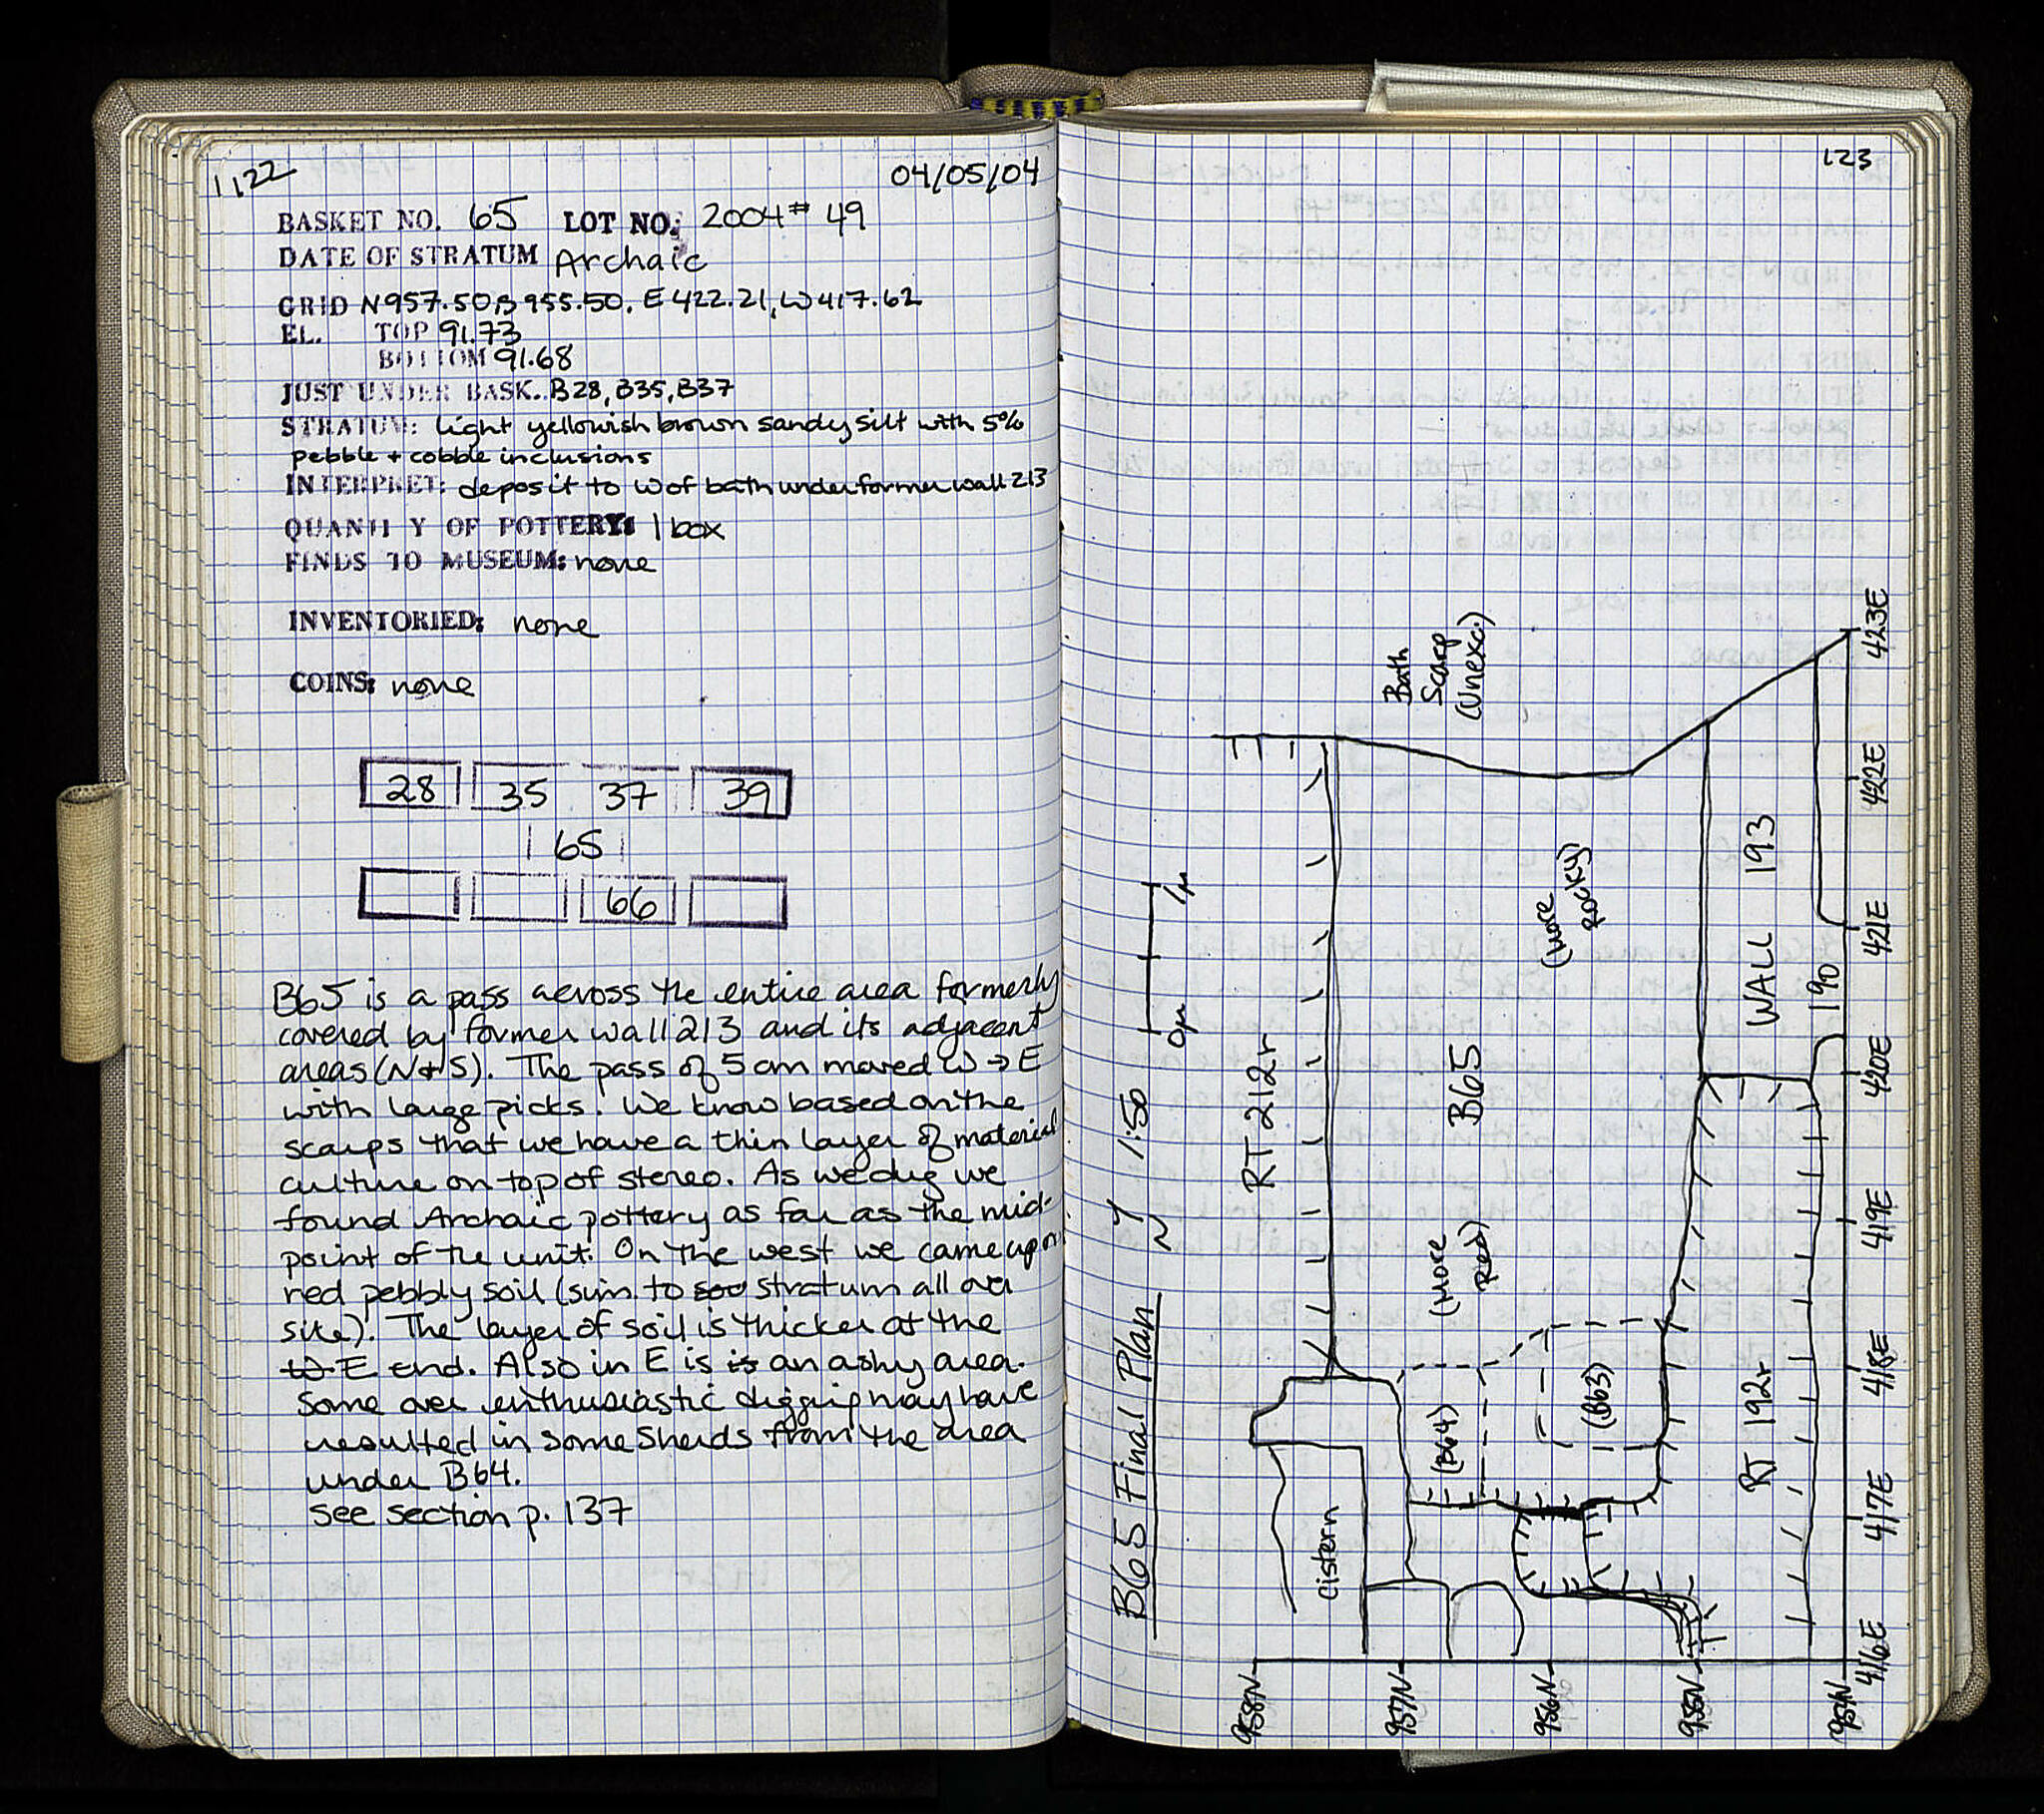 1122
04/05/04
BASKET NO. 65 LOT NO: 2004 # 49
DATE OF STRATUM Archaic
GRID N957.50, S955.50, E422.21, W417.62
EL. TOP 91.73
BOTTOM 91.68
JUST UNDER BASK. B28, B35, B37
STRATUM: light yellowish brown sandy silt with 5%
pebble + cobble inclusions
INTERPRET: deposit to W of bath under former wall 213
QUANTITY OF POTTERY: 1 box
FINDS TO MUSEUM: none
INVENTORIED: none
COINS: none
28 35 37 39
65
66
B65 is a pass across the entire area formerly
covered by former wall 213 and its adjacent
areas (N+S). The pass of 5cm moved W → E
with large picks. We know based on the
scarps that we have a thin layer of material
culture on top of stereo. As we dug we
found Archaic pottery as far as the mid-
point of the unit. On the west we came upon
red pebbly soil (sim. to stratum all over
site). The layer of soil is thicker at the
E end. Also in E is is an ashy area.
Some over enthusiastic digging may have
resulted in some sherds from the area
under B64.
See section p. 137
123
B65 Final Plan N 1:50
0m 1m
Bath
Scarp
(Unexc.)
RT 212r
B65
(More
Rocky)
(More
Red)
WALL 193
190
(B64)
(B63)
RT 192r
Cistern
958N
957N
956N
955N
954N
416E
417E
418E
419E
420E
421E
422E
423E